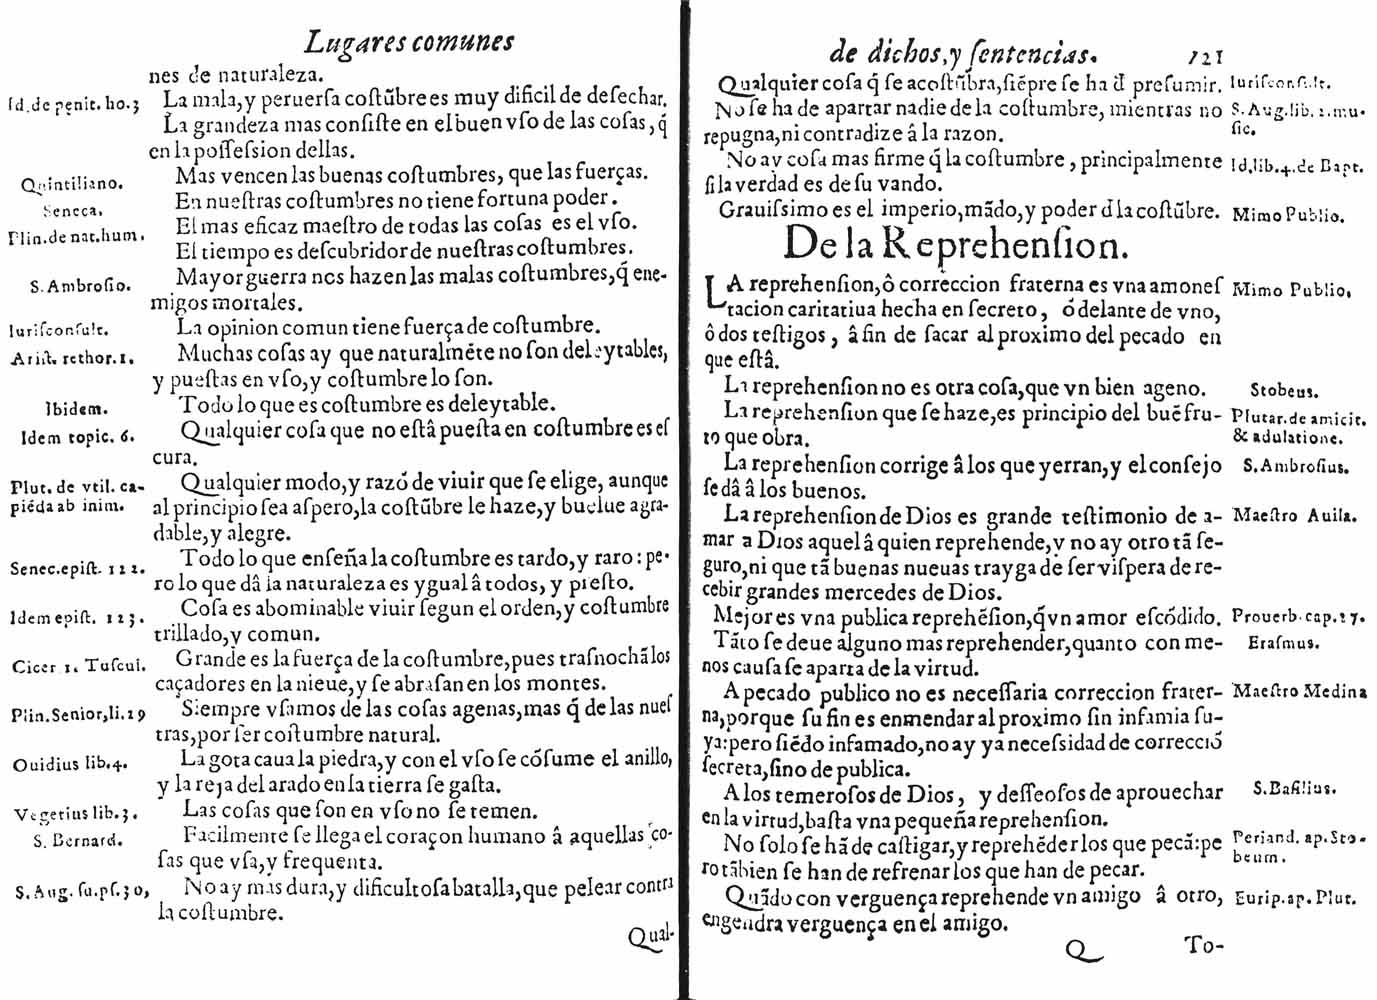 Lugares comunes
nes de naturaleza.
Id. de penit. ho. 3 La mala, y peruersa costũbre es muy dificil de desechar.
La grandeza mas consiste en el buen vso de las cosas, q̃
en la possession dellas.
Quintiliano. Mas vencen las buenas costumbres, que las fuerças.
Seneca. En nuestras costumbres no tiene fortuna poder.
Plin. de nat. hum. El mas eficaz maestro de todas las cosas es el vso.
El tiempo es descubridor de nuestras costumbres.
S. Ambrosio. Mayor guerra nos hazen las malas costumbres, q̃ ene-
migos mortales.
Iurisconsult. La opinion comun tiene fuerça de costumbre.
Arist. rethor. 1. Muchas cosas ay que naturalmẽte no son deleytables,
y puestas en vso, y costumbre lo son.
Ibidem. Todo lo que es costumbre es deleytable.
Idem topic. 6. Qualquier cosa que no estâ puesta en costumbre es es
cura.
Plut. de vtil. ca- Qualquier modo, y razõ de viuir que se elige, aunque
piẽda ab inim. al principio sea aspero, la costũbre le haze, y buelue agra-
dable, y alegre.
Todo lo que enseña la costumbre es tardo, y raro: pe-
Senec. epist. 122. ro lo que dâ la naturaleza es ygual â todos, y presto.
Idem epist. 123. Cosa es abominable viuir segun el orden, y costumbre
trillado, y comun.
Cicer 1. Tuscul. Grande es la fuerça de la costumbre, pues trasnochã los
caçadores en la nieue, y se abrasan en los montes.
Plin. Senior, li. 29 Siempre vsamos de las cosas agenas, mas q̃ de las nues
tras, por ser costumbre natural.
Ouidius lib. 4. La gota caua la piedra, y con el vso se cõsume el anillo,
y la reja del arado en la tierra se gasta.
Vegetius lib. 3. Las cosas que son en vso no se temen.
S. Bernard. Facilmente se llega el coraçon humano â aquellas co-
sas que vsa, y frequenta.
S. Aug. su. ps. 30, No ay mas dura, y dificultosa batalla, que pelear contra
la costumbre.
Qual-
de dichos, y sentencias. 121
Qualquier cosa q̃ se acostũbra, siẽpre se ha d̃ presumir. Iurisconsult.
No se ha de apartar nadie de la costumbre, mientras no S. Aug. lib. 2. mu-
repugna, ni contradize â la razon. sic.
No ay cosa mas firme q̃ la costumbre, principalmente Id. lib. 4. de Bapt.
si la verdad es de su vando.
Grauissimo es el imperio, mãdo, y poder d̃ la costũbre. Mimo Publio.
De la Reprehension.
LA reprehension, ô correccion fraterna es vna amones Mimo Publio.
tacion caritatiua hecha en secreto, ô delante de vno,
ô dos testigos, â fin de sacar al proximo del pecado en
que estâ.
La reprehension no es otra cosa, que vn bien ageno. Stobeus.
La reprehension que se haze, es principio del buẽ fru- Plutar. de amicit.
to que obra. & adulatione.
La reprehension corrige â los que yerran, y el consejo S. Ambrosius.
se dâ â los buenos.
La reprehension de Dios es grande testimonio de a- Maestro Auila.
mar a Dios aquel â quien reprehende, y no ay otro tã se-
guro, ni que tã buenas nueuas trayga de ser vispera de re-
cebir grandes mercedes de Dios.
Mejor es vna publica reprehẽsion, q̃ vn amor escõdido. Prouerb. cap. 27.
Tãto se deue alguno mas reprehender, quanto con me- Erasmus.
nos causa se aparta de la virtud.
A pecado publico no es necessaria correccion frater- Maestro Medina
na, porque su fin es enmendar al proximo sin infamia su-
ya: pero siẽdo infamado, no ay ya necessidad de correcciõ
secreta, sino de publica.
A los temerosos de Dios, y desseosos de aprouechar S. Basilius.
en la virtud, basta vna pequeña reprehension.
No solo se hã de castigar, y reprehẽder los que pecã: pe Periand. ap. Sto-
ro tãbien se han de refrenar los que han de pecar. beum.
Quãdo con verguença reprehende vn amigo â otro, Eurip. ap. Plut.
engendra verguença en el amigo.
Q To-